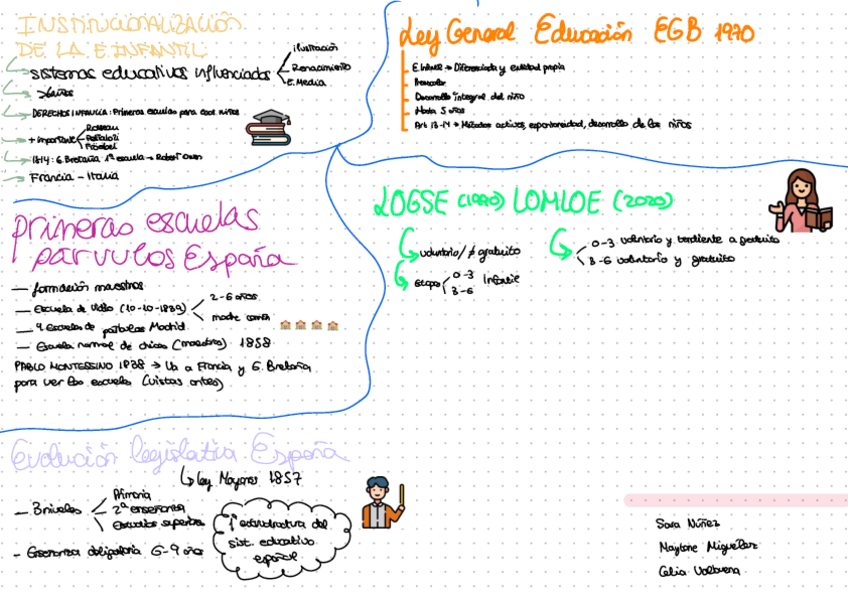 INSTITUCIONALIZACIÓN
DE LA E.INFANTIL:
sistemas educativos influenciados
ilustración
Renacimiento
E.Media
>6años
DERECHOS INFANCIA: Primeras escuelas para esos niños
+ importante
Rosseau
Pestalozi
Fröebel
1814: G.Bretaña 1ª escuela → Robert Owen
Francia - Italia
Ley General Educación EGB 1970
E.Infantil → Diferenciada y entidad propia
Preescolar
Desarrollo integral del niño
Hasta 5 años
Art 13-14 → Métodos activos, espontaneidad, desarrollo de los niños
primeras escuelas
párvulos España
— formación maestros
— Escuela de Virio (10-10-1839)
2-6 años
madre común
— 4 Escuelas de párvulos Madrid
— Escuela normal de chicas (maestras) 1858
PABLO MONTESSINO 1838 → Va a Francia y G. Bretaña
para ver las escuelas (vistas antes)
LOGSE (1990) LOMLOE (2020)
voluntario/ gratuito
etapas
0-3
3-6
Infantil
0-3 voluntario y tendiente a gratuito
3-6 voluntario y gratuito
Evolución legislativa España
Ley Moyano 1857
— 3 niveles
Primaria
2ª enseñanza
Estudios superiores
- Enseñanza obligatoria 6-9 años
1ª estructura del
sist. educativo
español
Sara Núñez
Maylone Miguelez
Celia Valbuena